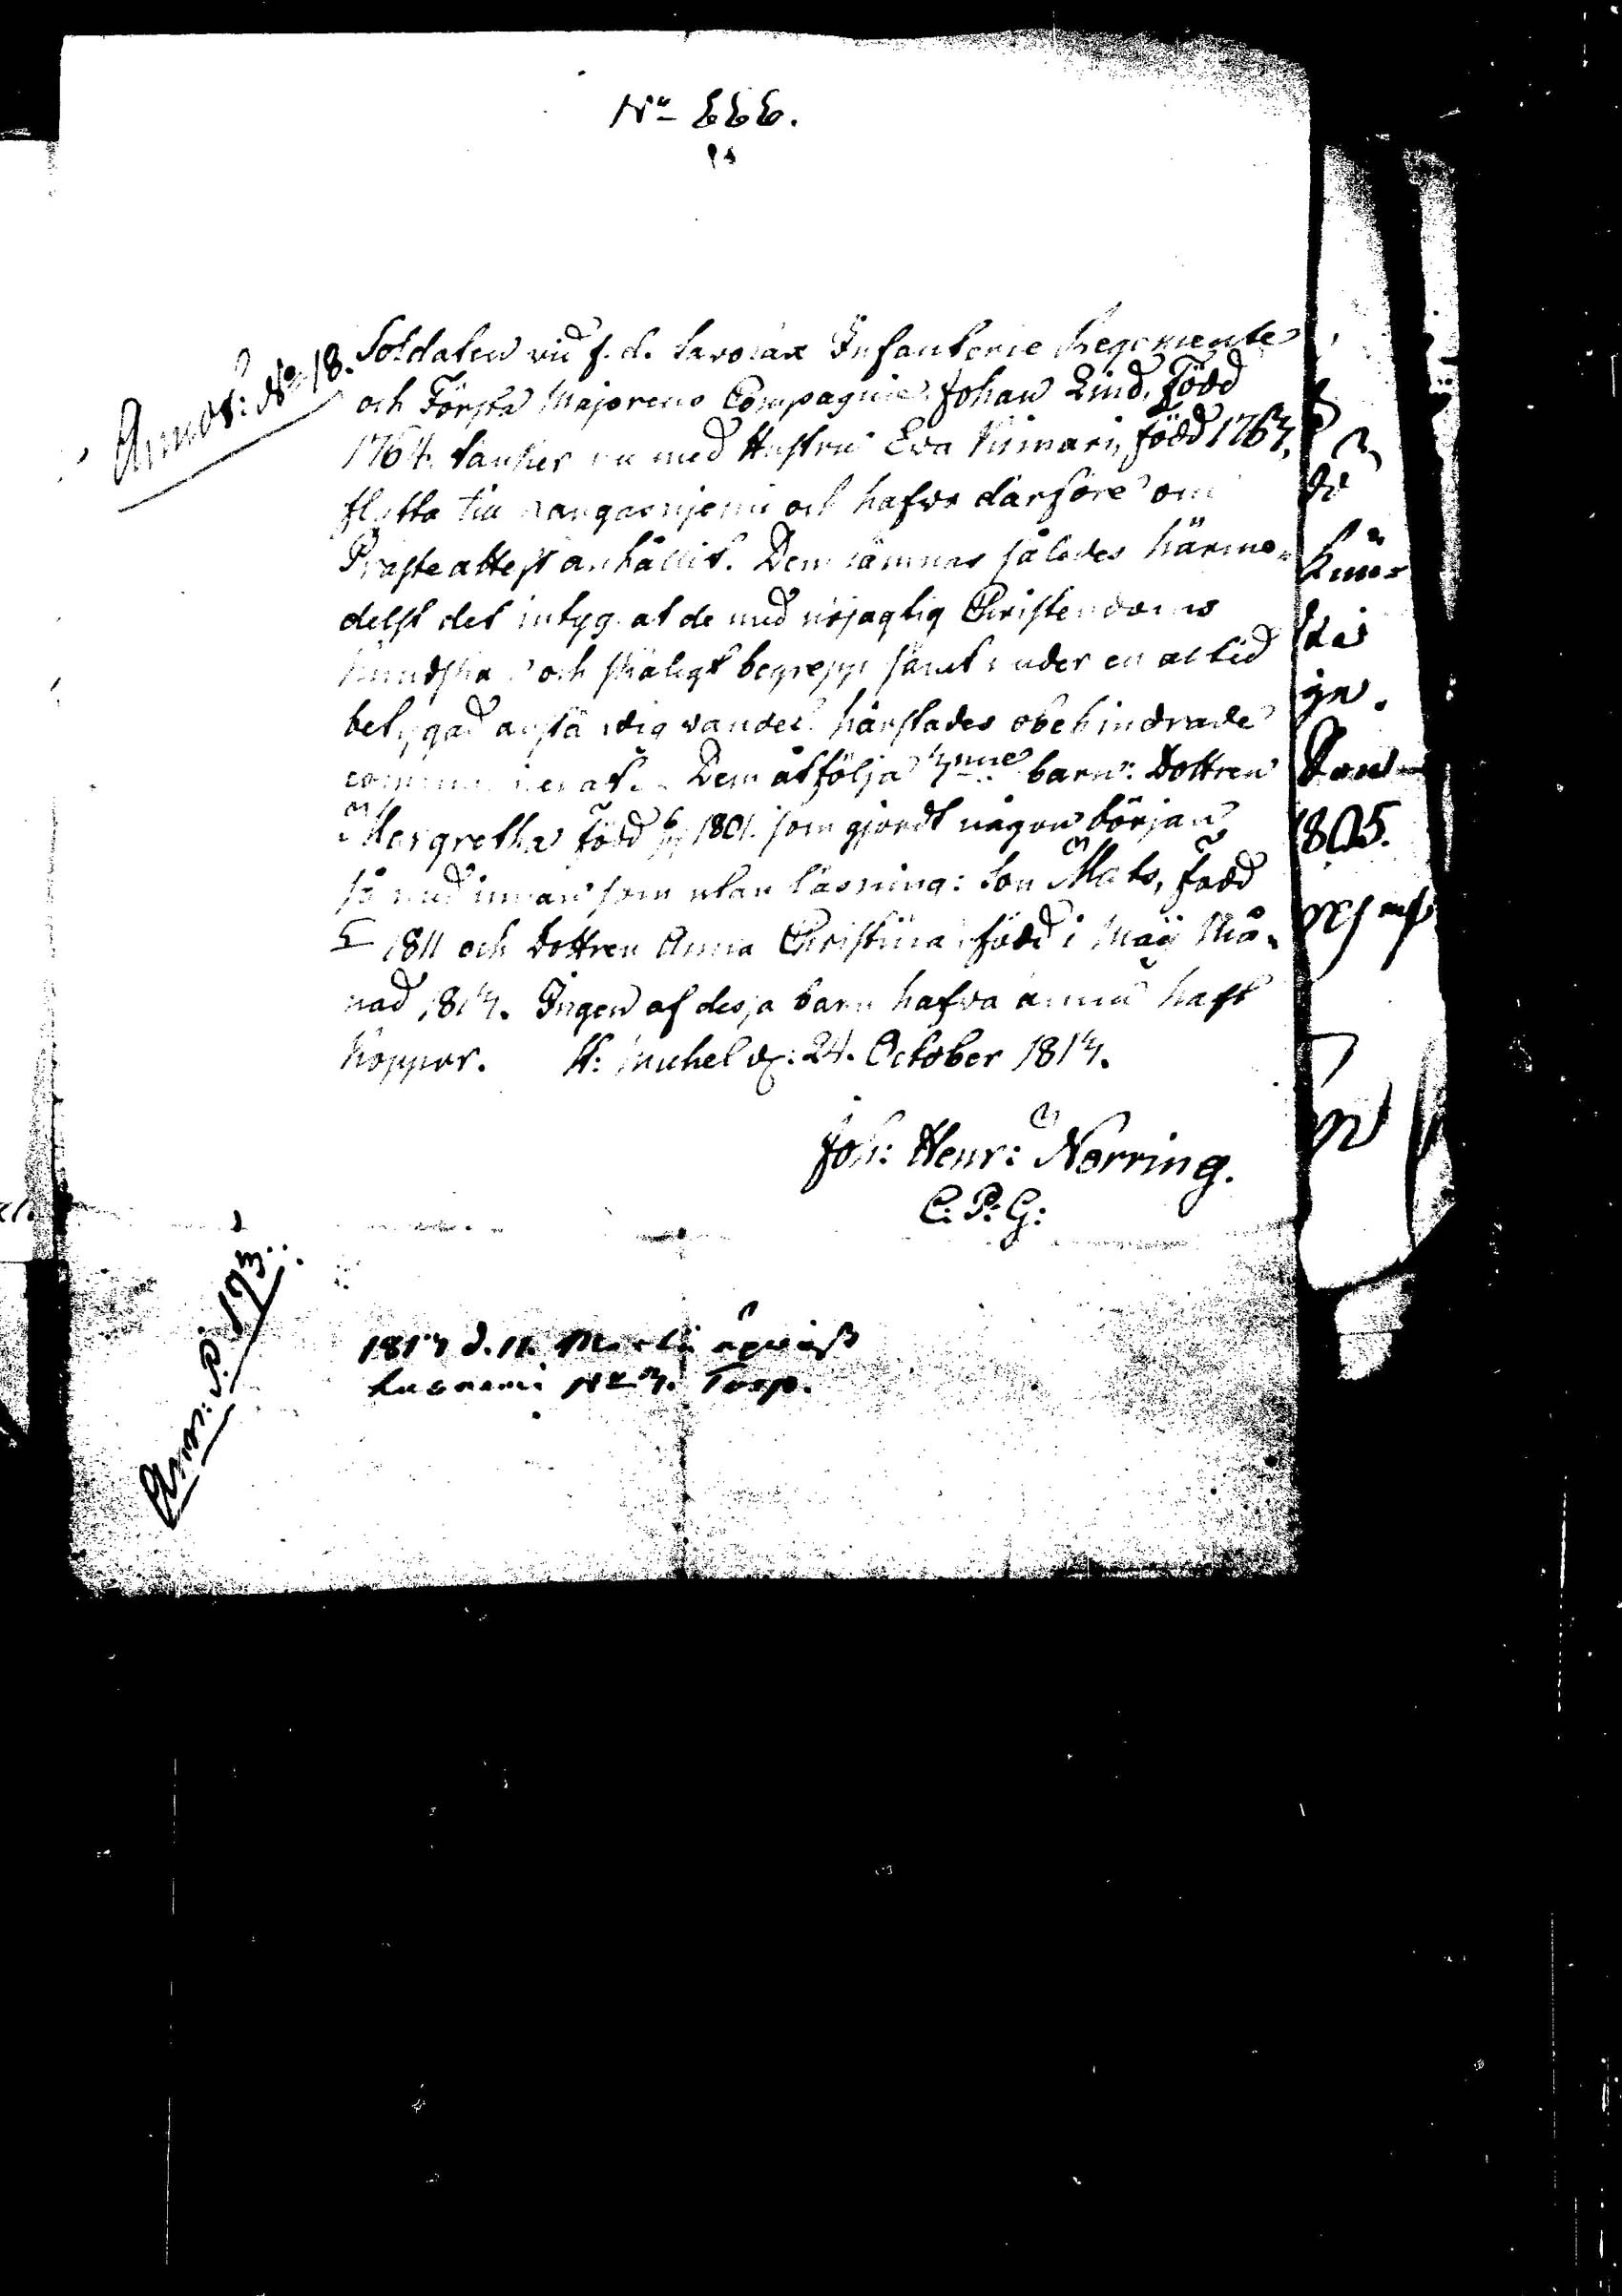 No 666.
Annot: No 18.
Soldaten vid f. d. Savolax Infanterie Regemente
och Första Majorens Compagnie Johan Lind, född
1764. tänker nu med Hustru Eva född 1763,
flytta till Kangasnjemi och hafva därföre om
Präste attest anhållit. Dem lämnas således härme-
delst det intyg at de med nöjagtig Christendoms
kundskap och skäligt begrepp samt under en altid
betygad anständig vandel härstädes obehindrade
communicerat. Dem åtfölja 3nne barn: Dottren
Margretha född 1801. som gjordt någon början
så med innan som utan läsning: Son Mats, född
1811 och Dottren Anna Christina född i Maij Må-
nad 1813. Ingen af dessa barn hafva ännu haft
koppor. St: Michel d: 24. October 1813.
Joh: Henr: Norring.
C. P. G:
Ann: P. 193.
1817 d. 11. Martii
No 3. Torp.
1805.